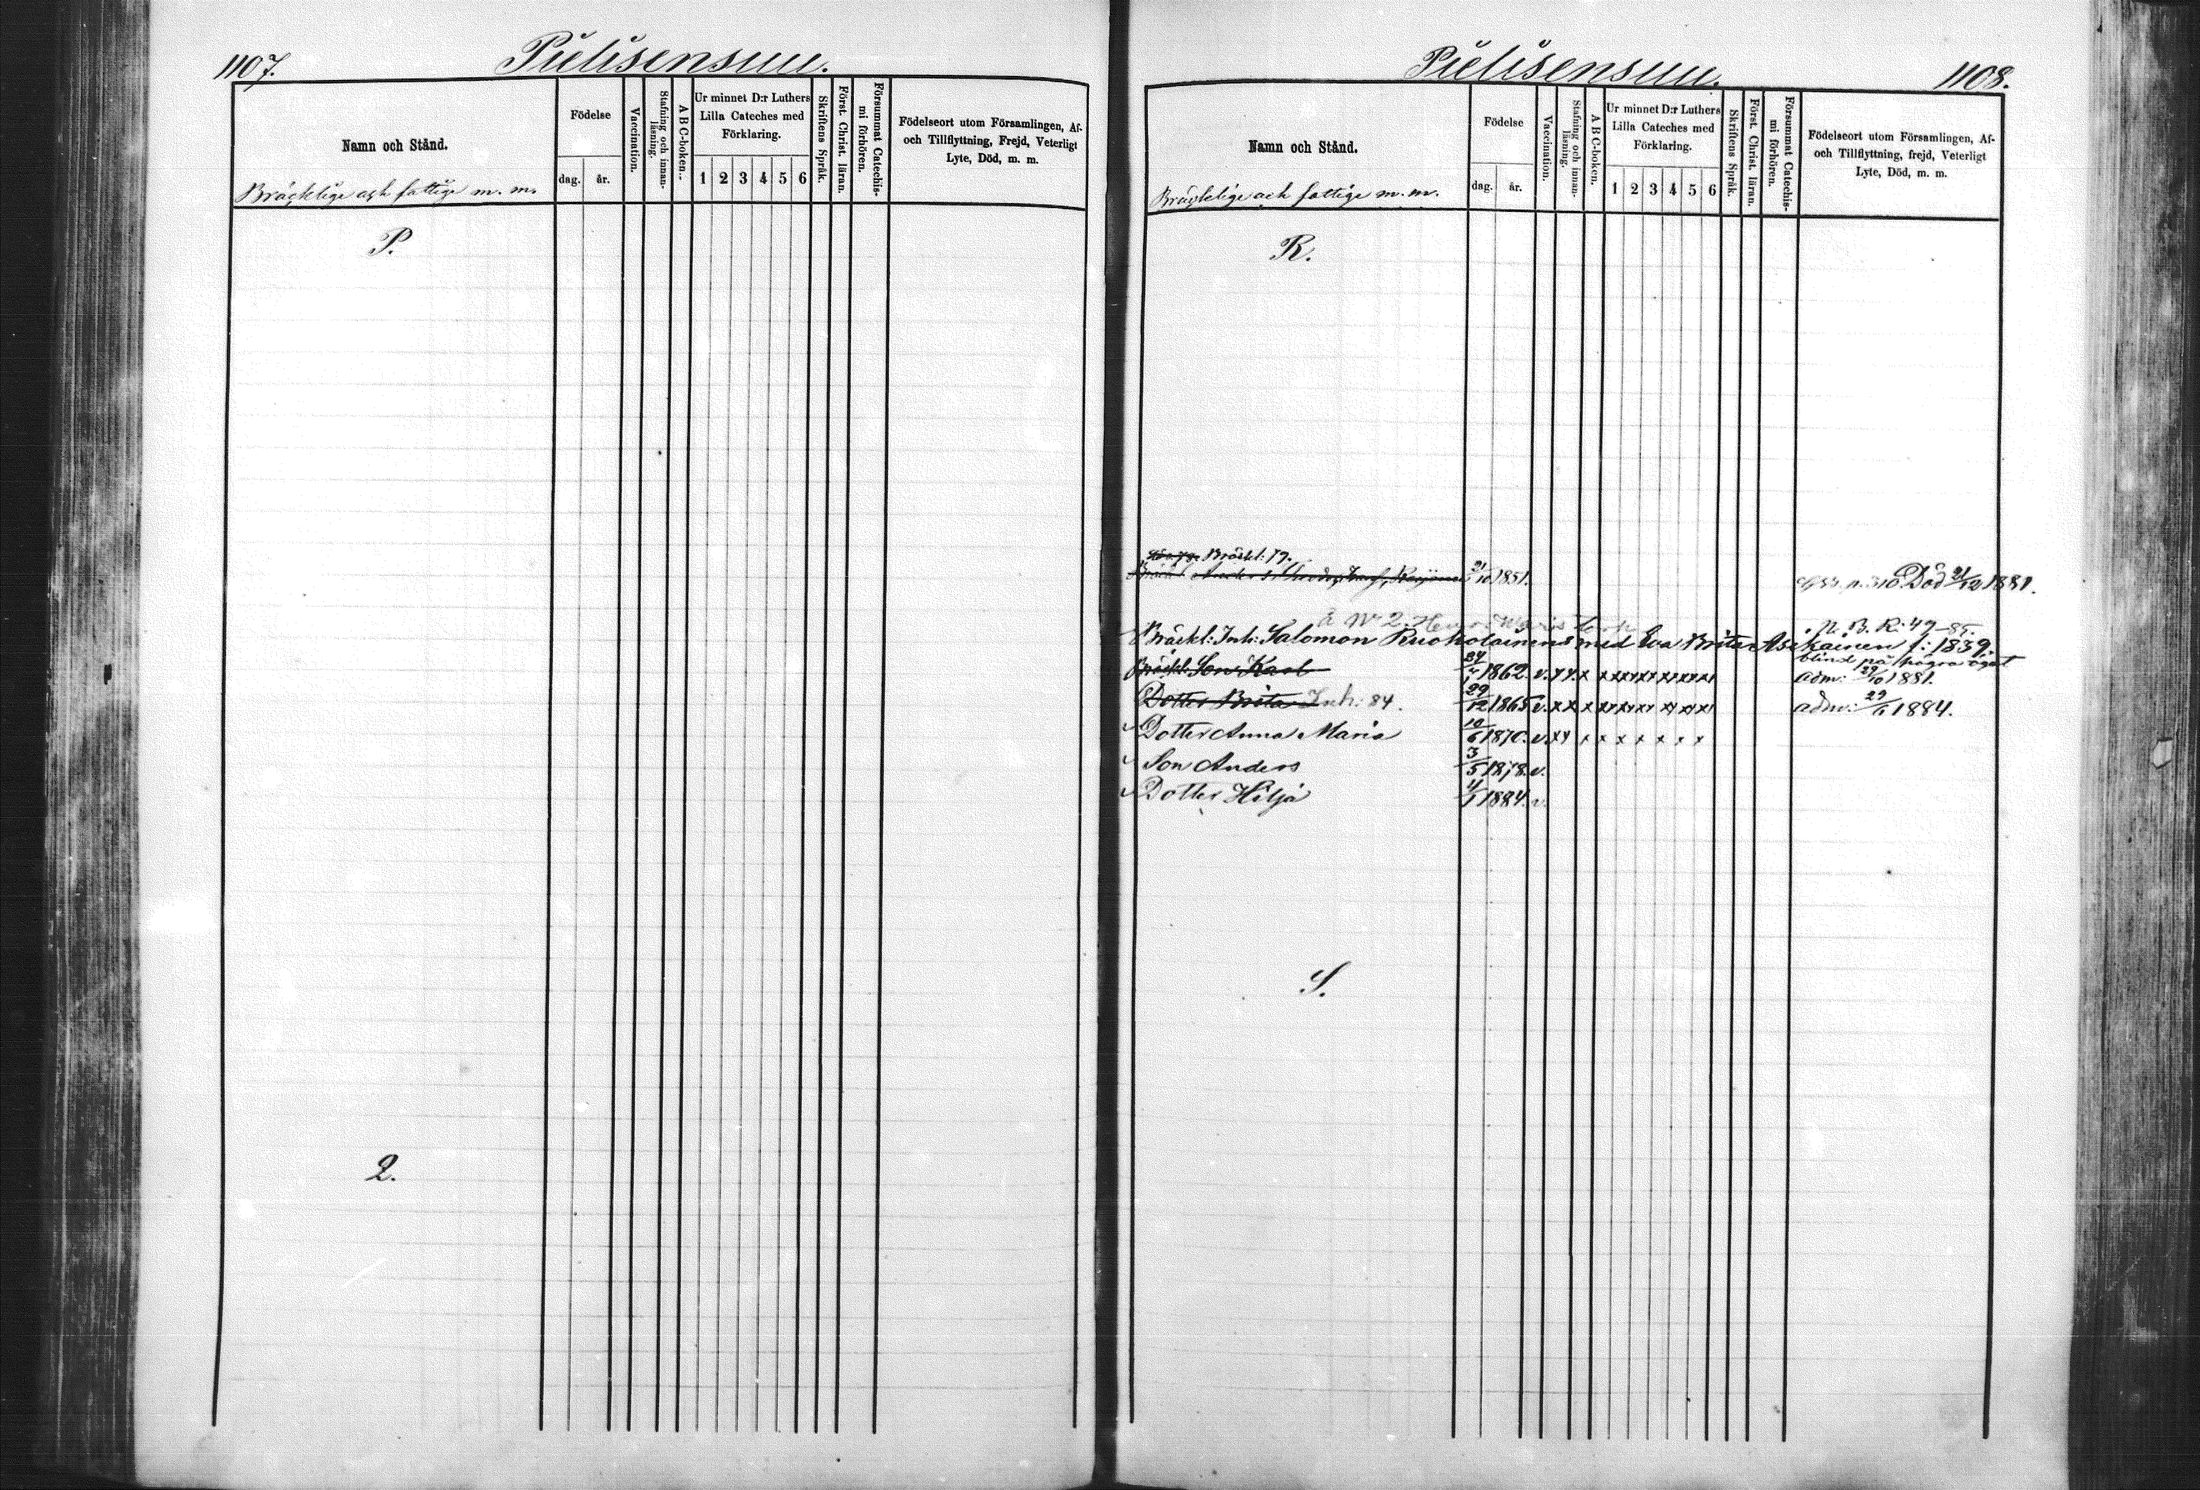 1107.
Pielisensuu.
Namn och Stånd.
Bräcklige och fattige m. m.
Födelse
dag.
år.
Vaccination.
Stafning och innan-
läsning.
A B C-boken.
Ur minnet D:r Luthers
Lilla Cateches med
Förklaring.
1 2 3 4 5 6
Skriftens Språk.
Först. Christ. läran.
Försummat Catechis-
mi förhören.
Födelseort utom Församlingen, Af-
och Tillflyttning, Frejd, Veterligt
Lyte, Död, m. m.
P.
2.
Pielisensuu.
1108.
Namn och Stånd.
Bräcklige och fattige m. m.
Födelse
dag.
år.
Vaccination.
Stafning och innan-
läsning.
A B C-boken.
Ur minnet D:r Luthers
Lilla Cateches med
Förklaring.
1 2 3 4 5 6
Skriftens Språk.
Först. Christ. läran.
Försummat Catechis-
mi förhören.
Födelseort utom Församlingen, Af-
och Tillflyttning, frejd, Veterligt
Lyte, Död, m. m.
R.
Bräckl: 79.
21/10 1851. Död 21/12 1881.
Å No 2
Bräckl: Inh: Salomon Ruokolainens med Eva Brita Asikainen f: 1839.
blind på högra ögat
Bräckl: Son Karl 24/7 1862. v. x x x x xx xx xx xx xx adm: 29/10 1881.
Dotter Brita Inh: 84. 29/12 1865 v. x x x xx xx xx xx xx adm: 29/6 1884.
Dotter Anna Maria 10/6 1870. v. x x x x x x x x x
Son Anders 3/5 1878. v.
Dotter Hilja 4/1 1884. v.
S.